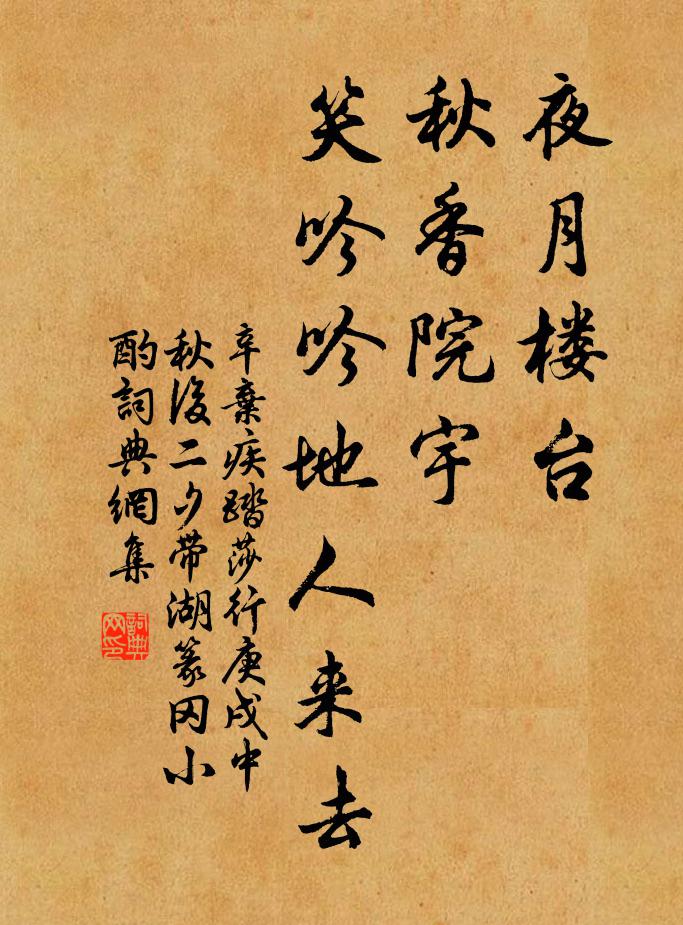 夜月楼台
秋香院宇
笑吟吟地人来去
辛棄疾踏莎行庚戌中
秋後二夕帶湖篆冈小
酌詞典網集
詞典
网印